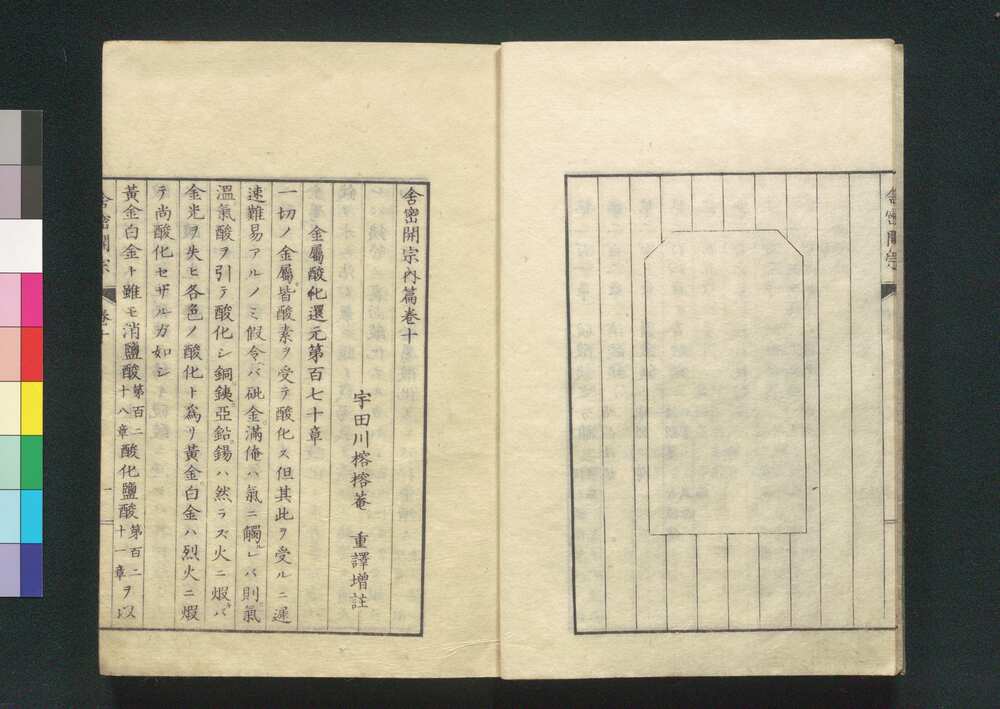 舍密開宗
舍密開宗內篇卷十
宇田川榕榕菴 重譯增註
金屬酸化還元第百七十章
一切ノ金屬皆酸素ヲ受テ酸化ス但其此ヲ受ルニ遲
速難易アルノミ假令バ砒金滿俺ハ氣ニ觸レバ則氣
溫氣酸ヲ引テ酸化シ銅銕亞鉛錫ハ然ラズ火ニ煆バ
金光ヲ失ヒ各色ノ酸化ト爲リ黃金白金ハ烈火ニ煆
テ尚酸化セザルガ如シ
黃金白金ト雖モ消鹽酸第百二十八章酸化鹽酸第百二十一章ヲ以
舍密開宗 卷十 一